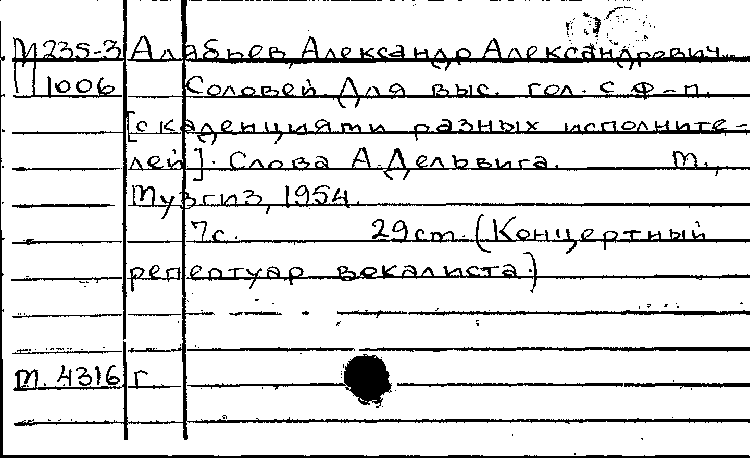 М235-3 Алябьев, Александр Александрович.
1006 Соловей. Для выс. гол. с ф-п.
[с каденциями разных исполните-
лей]. Слова А. Дельвига. М.,
Музгиз, 1954.
7с. 29см. (Концертный
репертуар вокалиста.)
м. 4316 г